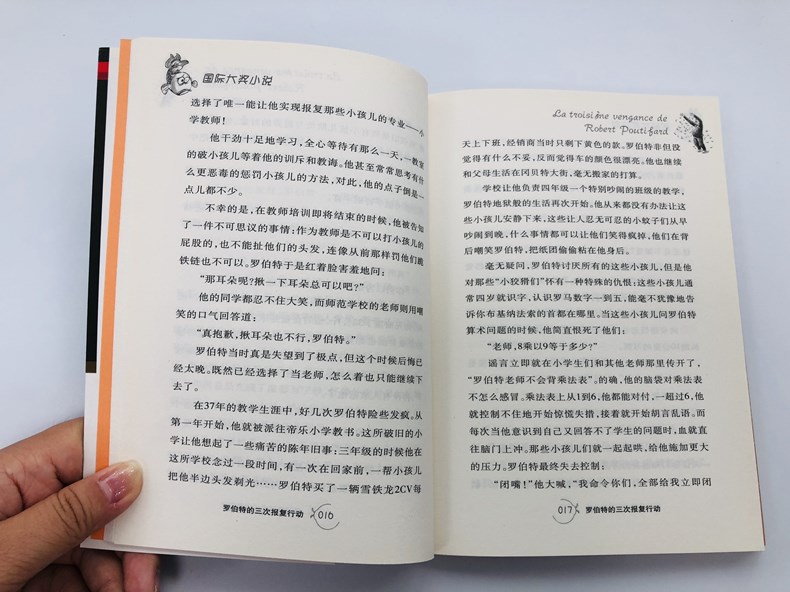 国际大奖小说
选择了唯一能让他实现报复那些小孩儿的专业——小
学教师！
他干劲十足地学习，全心等待有那么一天，一教室
的破小孩儿等着他的训斥和教诲。他甚至常常思考有什
么更恶毒的惩罚小孩儿的方法，对此，他的点子倒是一
点儿都不少。
不幸的是，在教师培训即将结束的时候，他被告知
了一件不可思议的事情：作为教师是不可以打小孩儿的
屁股的，也不能扯他们的头发，连像从前那样罚他们跪
铁链也不可以。罗伯特于是红着脸害羞地问：
“那耳朵呢？揪一下耳朵总可以吧？”
他的同学都忍不住大笑，而师范学校的老师则用嘲
笑的口气回答道：
“真抱歉，揪耳朵也不行，罗伯特。”
罗伯特当时真是失望到了极点，但这个时候后悔已
经太晚。既然已经选择了当老师，怎么着也只能继续下
去了。
在37年的教学生涯中，好几次罗伯特险些发疯。从
第一年开始，他就被派往帝乐小学教书。这所破旧的小
学让他想起了一些痛苦的陈年旧事：三年级的时候他在
这所学校念过一段时间，有一次在回家前，一帮小孩儿
把他半边头发剃光……罗伯特买了一辆雪铁龙2CV每
罗伯特的三次报复行动
016
La troisième vengance de
Robert Poutifard
天上下班，经销商当时只剩下黄色的款。罗伯特非但没
觉得有什么不妥，反而觉得车的颜色很漂亮。他也继续
和父母生活在冈贝特大街，毫无搬家的打算。
学校让他负责四年级一个特别吵闹的班级的教学，
罗伯特地狱般的生活再次开始。他从来都没有办法让这
些小孩儿安静下来，这些让人忍无可忍的小蚊子们从早
吵闹到晚，什么事情都可以让他们笑得疯掉，他们在背
后嘲笑罗伯特，把纸团偷偷粘在他身后。
毫无疑问，罗伯特讨厌所有的这些小孩儿，但是他
对那些“小狡猾们”怀有一种特殊的仇恨；这些小孩儿通
常四岁就识字，认识罗马数字一到五，能毫不犹豫地告
诉你布基纳法索的首都在哪里。当这些小孩儿问罗伯特
算术问题的时候，他简直恨死了他们：
“老师，8乘以9等于多少？”
谣言立即就在小学生们和其他老师那里传开了，
“罗伯特老师不会背乘法表”。的确，他的脑袋对乘法表
不怎么感冒。乘法表上从1到6，他都能对付，一超过6，他
就控制不住地开始惊慌失措，接着就开始胡言乱语。而
每次当他意识到自己又回答不了学生的问题时，血就直
往脑门上冲。那些小孩儿们就一起起哄，给他施加更大
的压力。罗伯特最终失去控制：
“闭嘴！”他大喊，“我命令你们，全部给我立即闭
017
罗伯特的三次报复行动